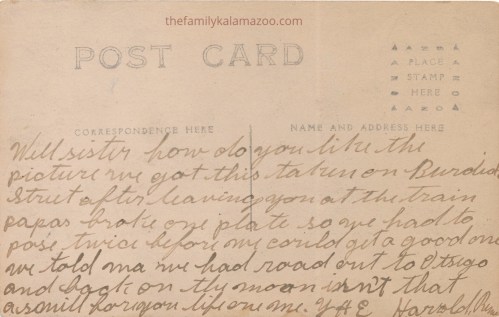 thefamilykalamazoo.com
POST CARD
PLACE
STAMP
HERE
CORRESPONDENCE HERE
NAME AND ADDRESS HERE
Well sister how do you like the
picture we got this taken on Burdick
Street after leaving you at the train
papas broke one plate so we had to
pose twice before we could get a good one
we told ma we had road out to Otsego
and back on the moon isn't that
a smill for you life one me.
Harold,